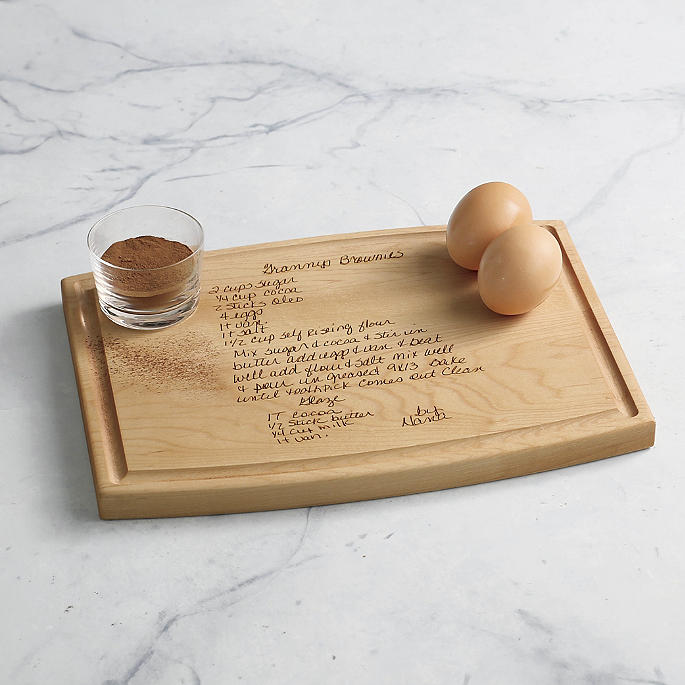 Granny's Brownies
2 cups sugar
1/4 cup cocoa
2 sticks oleo
4 eggs
1 t van.
1 t salt
1 1/2 cup self rising flour
Mix sugar & cocoa & stir in
butter add eggs & van & beat
well add flour & salt mix well
& pour in greased 9x13 Bake
until toothpick comes out clean
Glaze
1 T cocoa
1/2 stick butter
1/4 cup milk
1 t van.
by
Nana